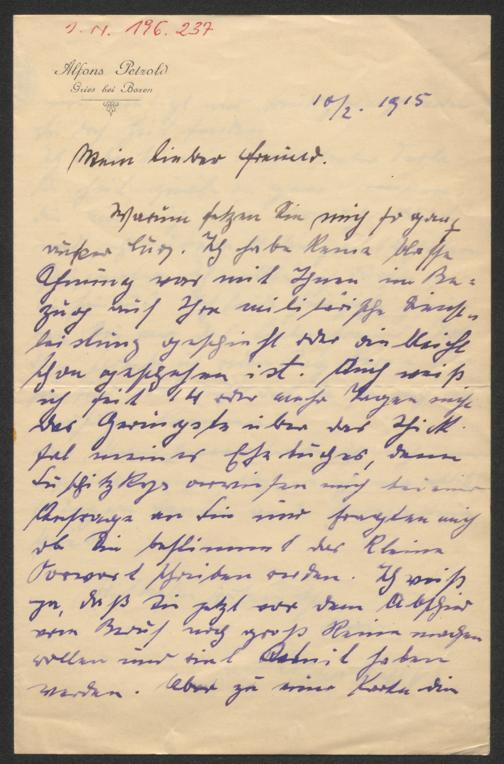 I. N. 196.237
Alfons Petzold
Gries bei Bozen
10/2. 1915
Mein lieber Freund.
Warum setzen Sie mich so ganz
außer Kurs. Ich habe keine blasse
Ahnung was mit Ihnen im Be-
zug auf Ihre militärische Dienst-
leistung geschieht oder vielleicht
schon geschehen ist. Auch weiß
ich seit 14 oder mehr Tagen nicht
das Geringste über das Schick-
sal meines Ehebuches, denn
verwiesen mich bei einer
Anfrage an Sie und fragten mich
ob Sie bestimmt das kleine
Vorwort schreiben werden. Ich weiß
ja, daß Sie jetzt vor dem Abschied
vom Beruf noch groß Reine machen
wollen und viel Arbeit haben
werden. Aber zu einer Karte die